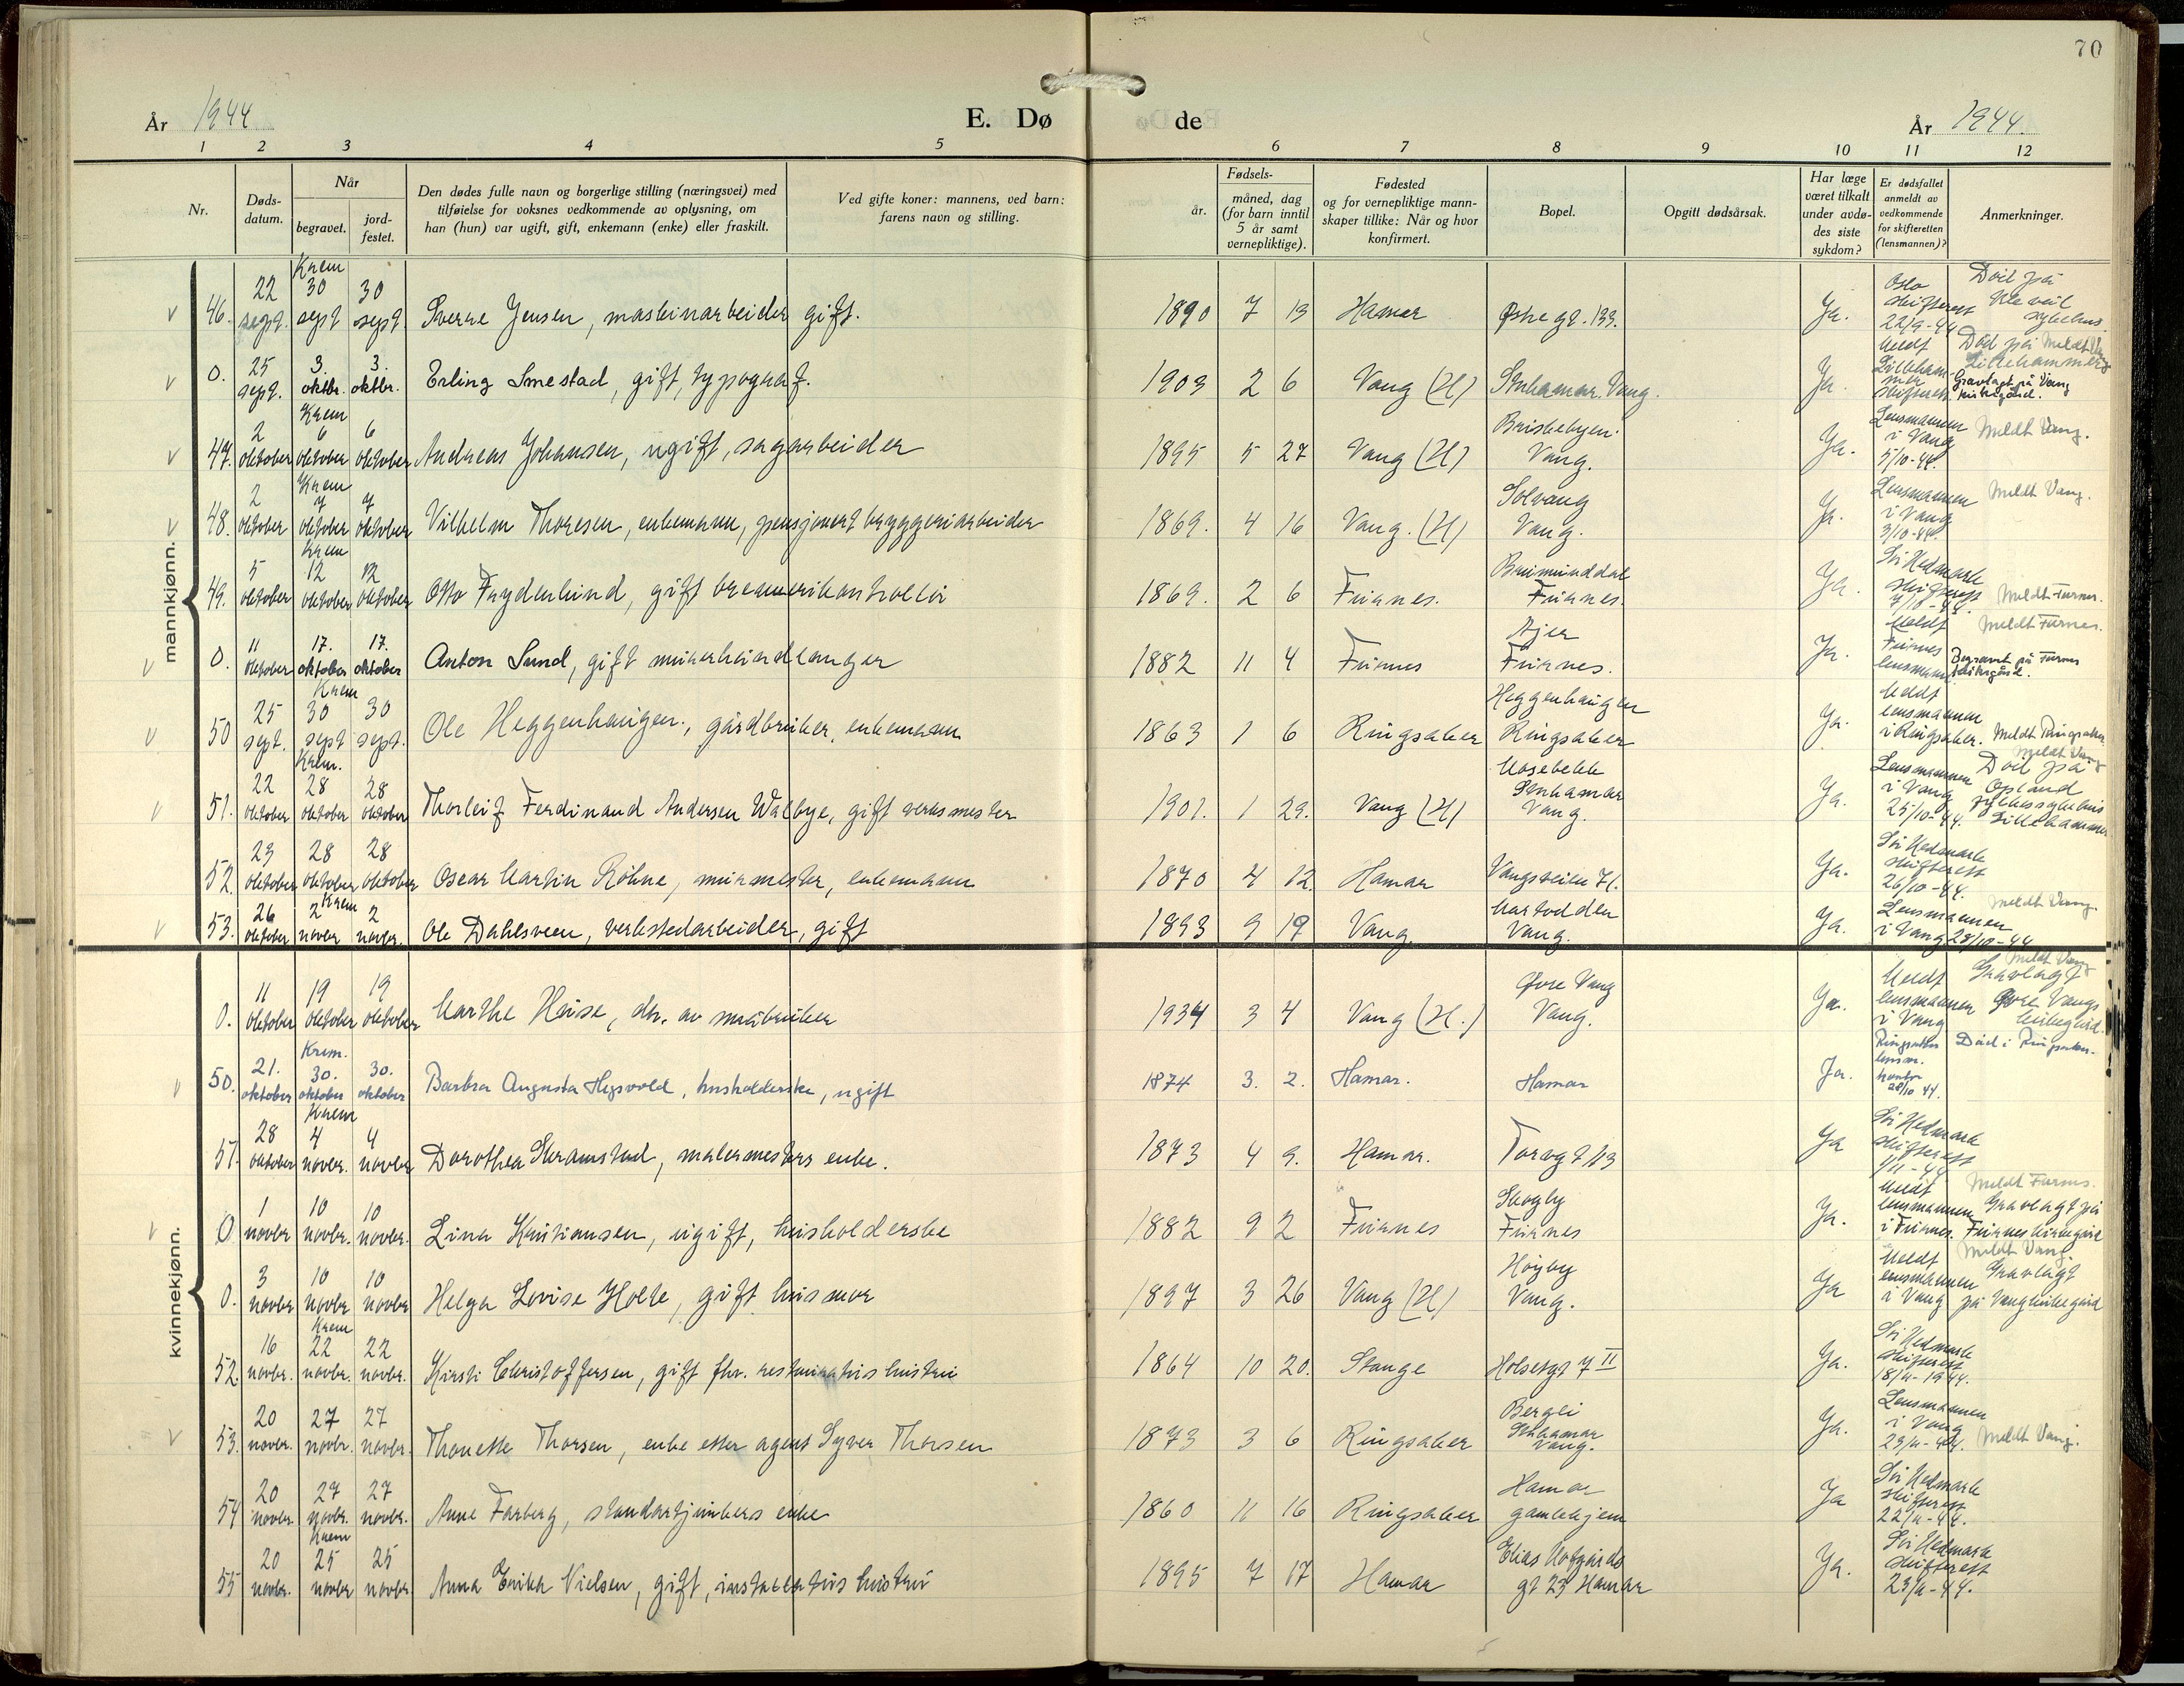 70
År 1944
E. Dø de
År 1944.
1 2 3 4 5 6 7 8 9 10 11 12
Nr.
Døds-
datum.
Når
begravet.
jord-
festet.
Den dødes fulle navn og borgerlige stilling (næringsvei) med
tilføielse for voksnes vedkommende av oplysning, om
han (hun) var ugift, gift, enkemann (enke) eller fraskilt.
Ved gifte koner: mannens, ved barn:
farens navn og stilling.
Fødsels-
år.
måned, dag
(for barn inntil
5 år samt
vernepliktige).
Fødested
og for vernepliktige mann-
skaper tillike: Når og hvor
konfirmert.
Bopel.
Opgitt dødsårsak.
Har læge
været tilkalt
under avdø-
des siste
sykdom?
Er dødsfallet
anmeldt av
vedkommende
for skifteretten
(lensmannen)?
Anmerkninger.
mannkjønn.
46. 22 sept. Krem 30 sept 30 sept Sverre Jensen, maskinarbeider gift. 1890 7 13 Hamar Østre gt. 133. Ja. Oslo skifterett 22/9-44 Død på Ullevål sykehus.
0. 25 sept. 3. oktbr. 3. oktbr. Erling Smestad, gift, typograf. 1903 2 6 Vang (H) Storhamar. Vang. Ja. Meldt Lillehammer skifterett. Død på Lillehammer Meldt Vang Gravlagt på Vang kirkegård.
47. 2 oktober Krem 6 oktober 6 oktober Andreas Johansen, ugift, sagarbeider 1895 5 27 Vang (H) Briskebyen. Vang. Ja. Lensmannen i Vang 5/10-44. Meldt Vang.
48. 2 oktober Krem 7 oktober 7 oktober Vilhelm Thoresen, enkemann, pensjonert bryggeriarbeider 1869. 4 16 Vang. (H) Solvang Vang. Ja. Lensmannen i Vang 3/10-44. Meldt Vang.
49. 5 oktober Krem 12 oktober 12 oktober Otto Frydenlund, gift 1869. 2 6 Furnes. Brumunddal Furnes. Ja. Sør Hedmark skifterett 7/10-44. Meldt Furnes.
0. 11 oktober 17. oktober 17. oktober Anton Lund, gift murerhåndlanger 1882 11 4 Furnes Ajer Furnes. Ja. Meldt Furnes lensmann. Meldt Furnes. Begravet på Furnes kirkegård.
50 25 sept. Krem 30 sept 30 sept. Ole Heggenhaugen., gårdbruker, enkemann 1863 1 6 Ringsaker Heggenhaugen Ringsaker Ja. Meldt lensmannen i Ringsaker. Meldt Ringsaker.
51. 22 oktober Krem. 28 oktober 28 oktober Thorleif Ferdinand Andersen Walbye, gift verksmester 1901. 1 29. Vang (H) Mosebekk Storhamar Vang. Ja. Lensmannen i Vang 25/10-44. Meldt Vang Død på Opland fylkessykehus Lillehammer
52. 23 oktober 28 oktober 28 oktober Oscar Martin Røhne, murmester, enkemann 1870 4 12. Hamar Vangsveien 71. Ja. Sør Hedmark skifterett 26/10-44.
53. 26 oktober Krem 2 novbr 2 novbr. Ole Dahlsveen, verkstedarbeider, gift 1893 9 19 Vang. Martodden Vang. Ja. Lensmannen i Vang 28/10-44 Meldt Vang.
kvinnekjønn.
0. 11 oktober 19 oktober 19 oktober Marthe Huse, dtr. av småbruker 1934 3 4 Vang (H.) Øvre Vang Vang. Ja. Meldt lensmannen i Vang Meldt Vang Gravlagt Øvre Vangs kirkegård.
50. 21. oktober Krem. 30. oktober 30. oktober Barbra Augusta Hegsvold, husholderske, ugift 1874 3. 2. Hamar. Hamar Ja. Ringsaker lensm. kontor 28/10 44. Død i Ringsaker.
51. 28 oktober Krem 4 novbr. 4 novbr Dorothea Skramstad, malermesters enke. 1873 4 9. Hamar. Torvgt 113 Ja Sør Hedmark skifterett 1/11-44
0 1 novbr 10 novbr. 10 novbr. Lina Kristiansen, ugift, husholderske 1882 9 2 Furnes Skogly Furnes Ja. Meldt lensmannen i Furnes. Meldt Furnes. Gravlagt på Furnes kirkegård
0. 3 novbr 10 novbr 10 novbr Helga Lovise Holte, gift husmor 1897 3 26 Vang (H) Høyby Vang. Ja Meldt lensmannen i Vang Meldt Vang. Gravlagt på Vang kirkegård
52. 16 novbr. Krem 22 novbr. 22 novbr. Kirsti Christoffersen, gift fhv. restauratørs hustru 1864 10 20. Stange Holsetgt 7 II Ja. Sør Hedmark skifterett 18/11-1944.
53. 20 novbr. 27 novbr. 27 novbr. Thonette Thorsen, enke etter agent Syver Thorsen 1873 3 6 Ringsaker Bergli Storhamar Vang. Ja. Lensmannen i Vang 23/11-44. Meldt Vang.
54 20 novbr 27 novbr. 27 novbr. Anne Farberg, standartjunkers enke 1860 11 16 Ringsaker Hamar gamlehjem Ja Sør Hedmark skifterett 22/11-44.
55 20 novbr. Krem 25 novbr 25 novbr. Anna Erikka Nielsen, gift, installatørs hustru 1895 7 17 Hamar gt 23 Hamar Ja. Sør Hedmark skifterett 23/11-44.